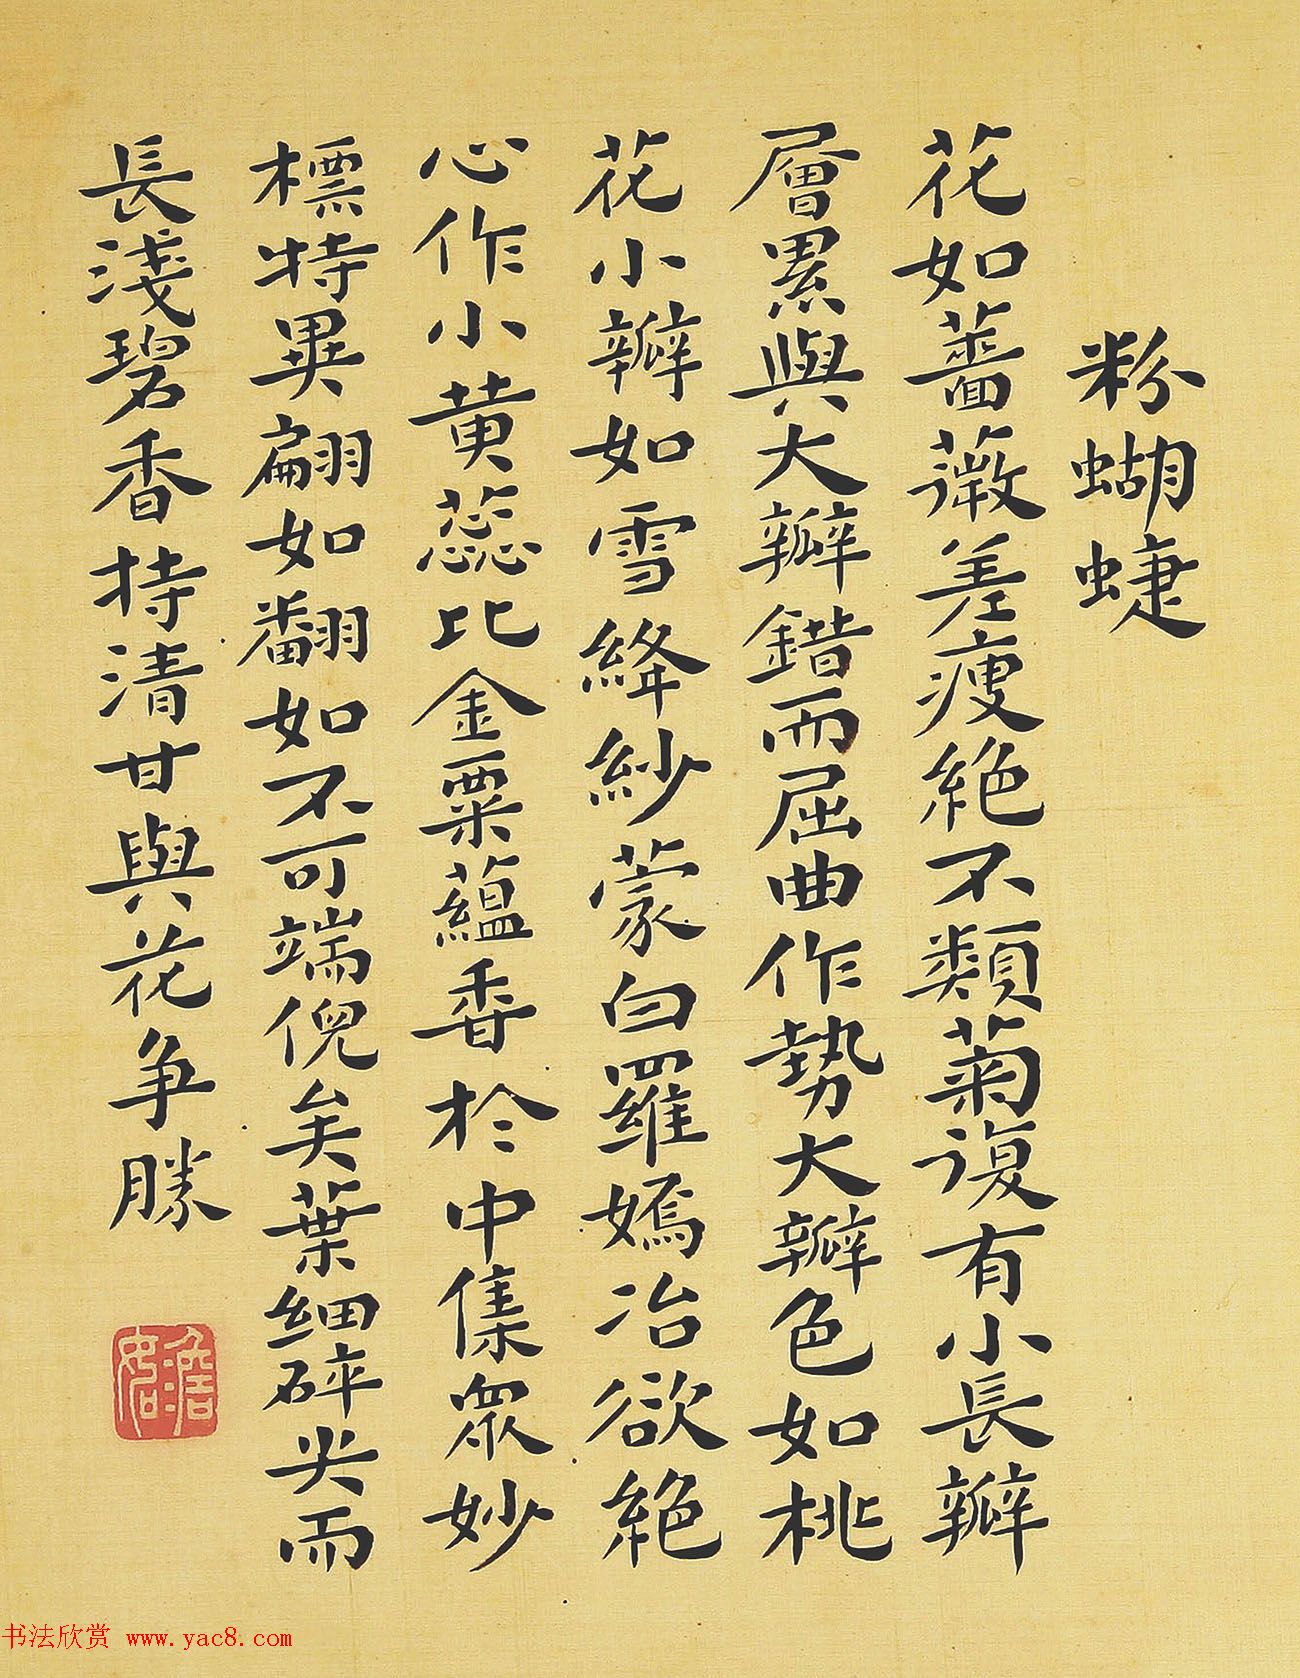 粉蝴蜨
花如薔薇差瘦絶不類菊復有小長瓣
層累與大瓣錯而屈曲作勢大瓣色如桃
花小瓣如雪絳紗蒙白羅嫣冶欲絶
心作小黄蕊比金粟蘊香於中集衆妙
標特異翩如翻如不可端倪矣葉細碎尖而
長淺碧香持清甘與花争勝
书法欣赏 www.yac8.com